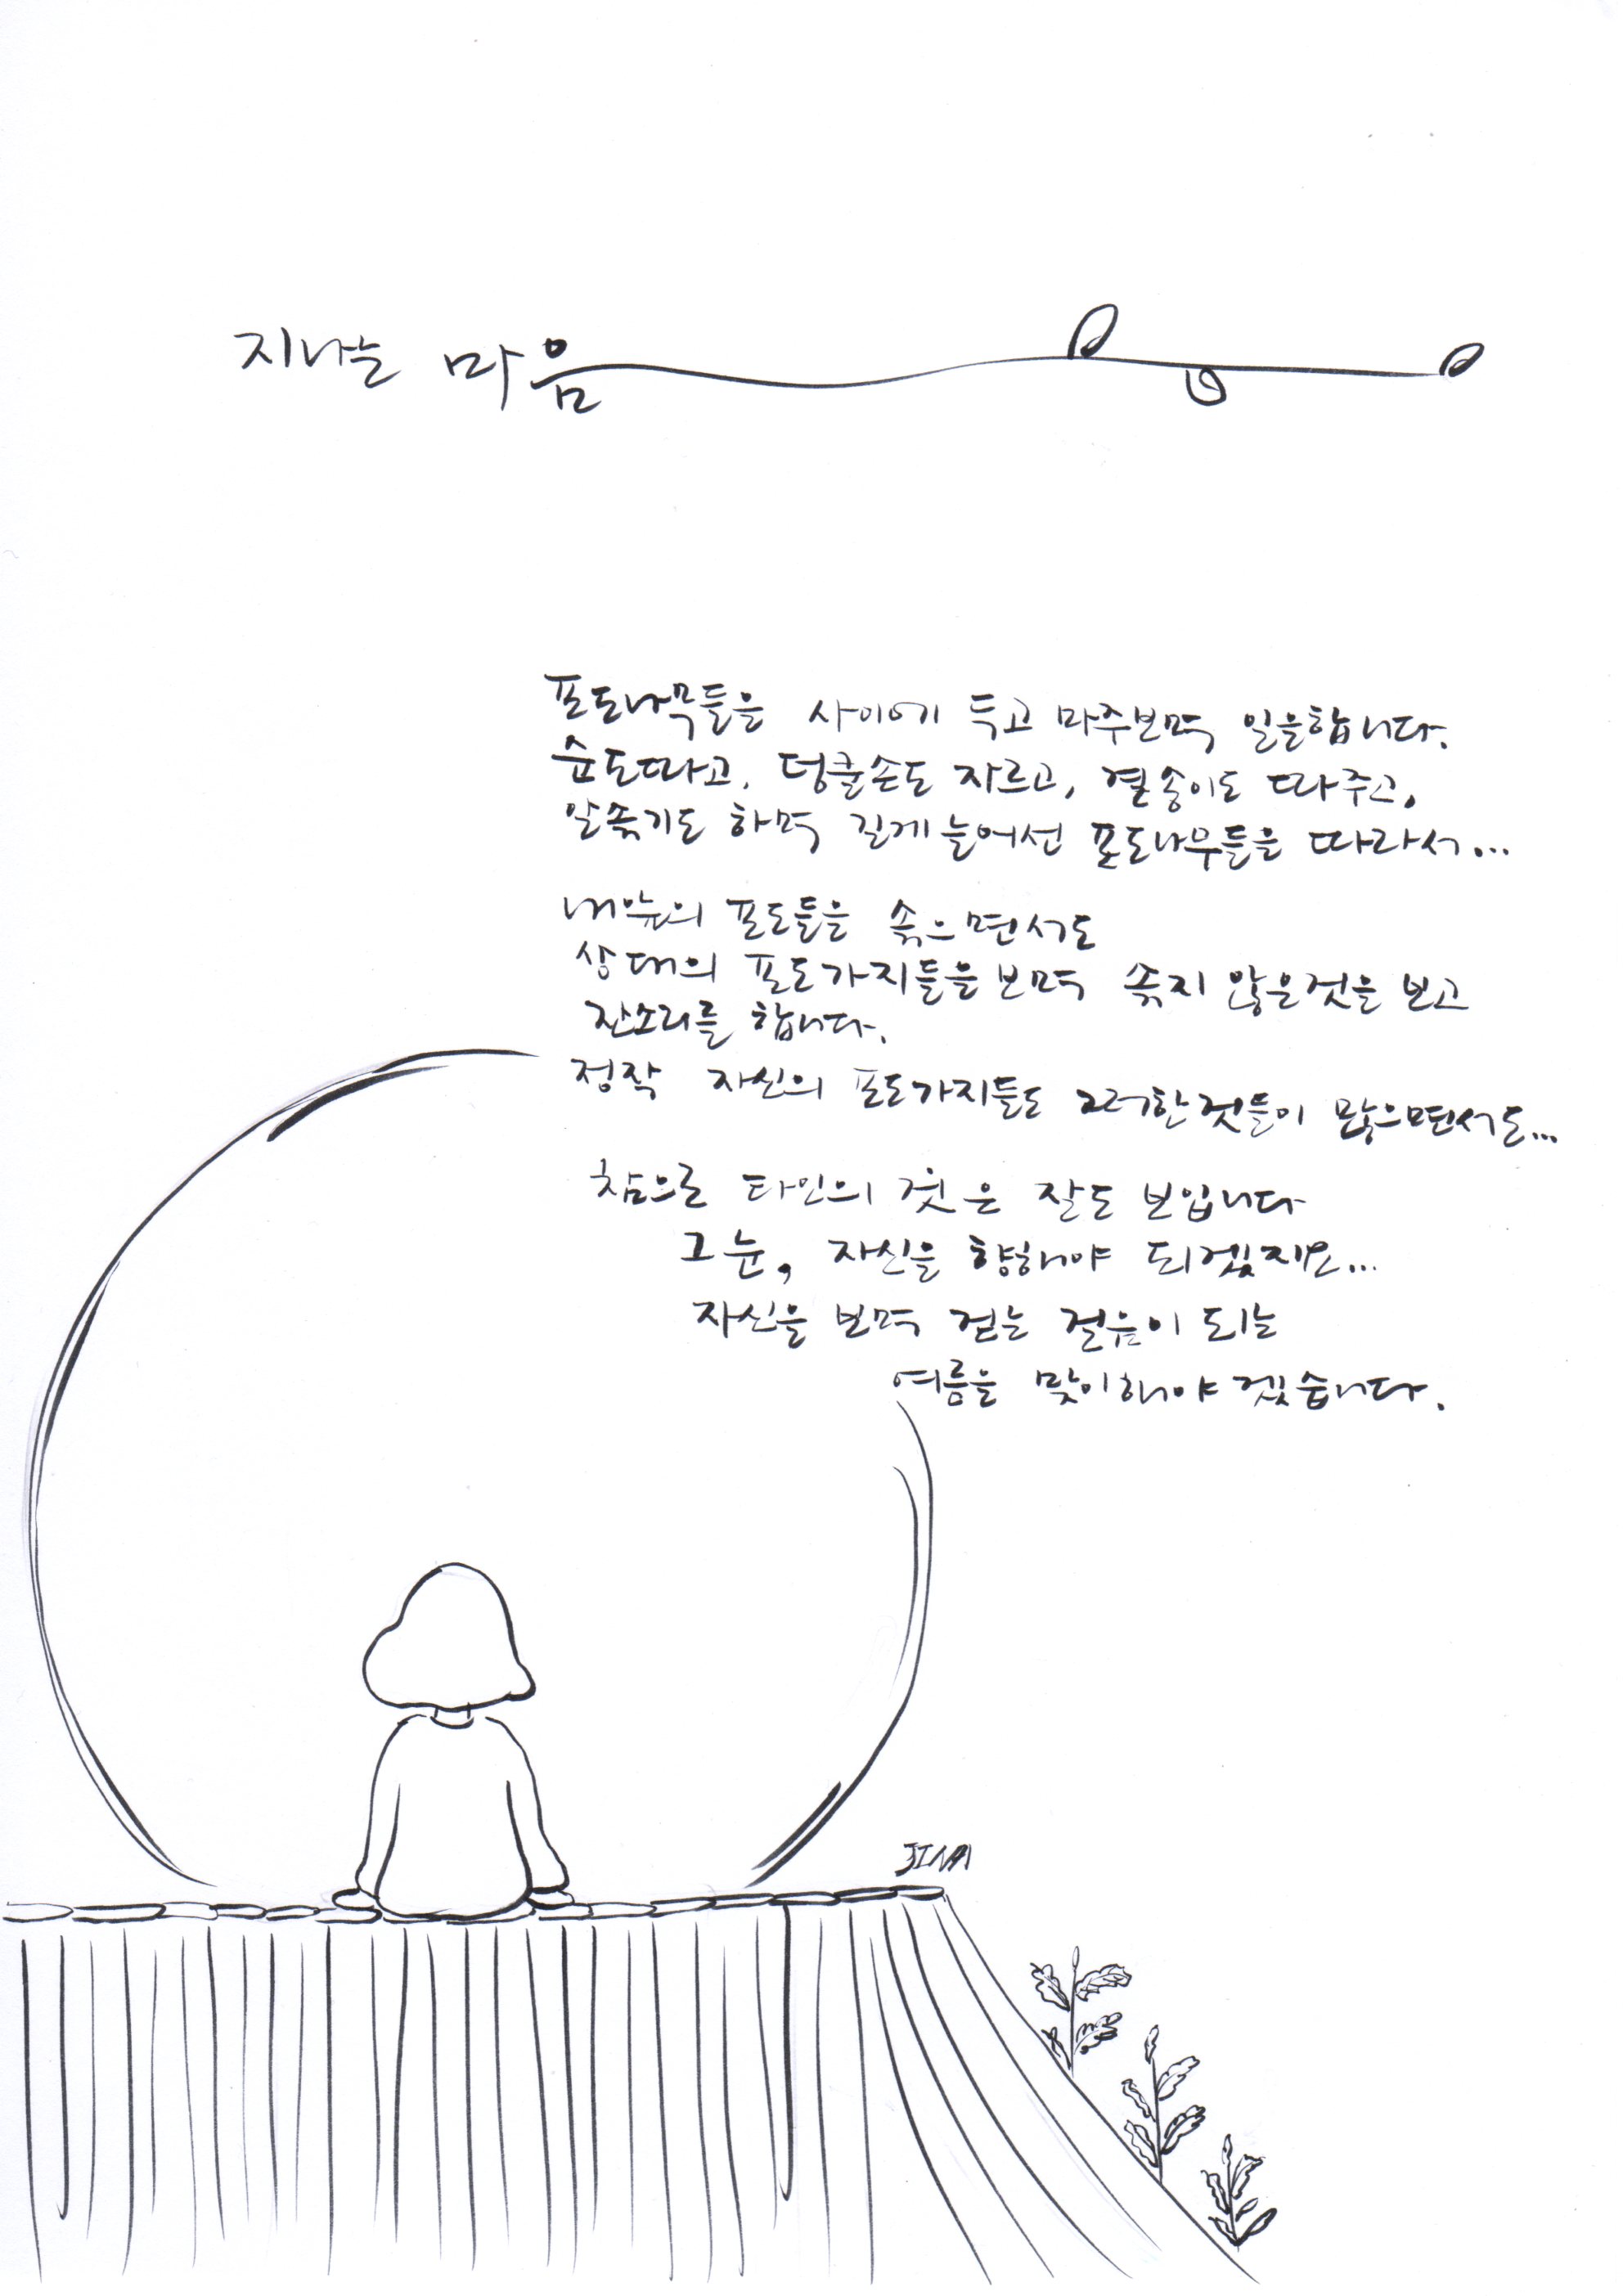 지나는 마음
포도나무들을 사이에 두고 마주보며 일을합니다.
순도따고, 덩굴손도 자르고, 곁송이도 따주고,
알솎기도 하며 길게 늘어선 포도나무들을 따라서...
내앞의 포도들을 솎으면서도
상대의 포도가지들을 보며 솎지 않은것을 보고
잔소리를 합니다.
정작 자신의 포도가지들도 그러한것들이 많으면서도...
참으로 타인의 것은 잘도 보입니다
그 눈, 자신을 향해야 되겠지요...
자신을 보며 걷는 걸음이 되는
여름을 맞이해야 겠습니다.
JINA